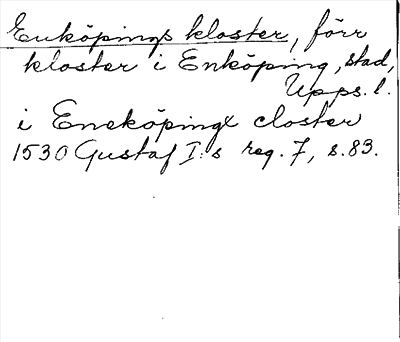 Enköpings kloster, förr
kloster i Enköping, stad,
Upps. l.
i Eneköpingx closter
1530 Gustaf I:s reg. 7, s. 83.